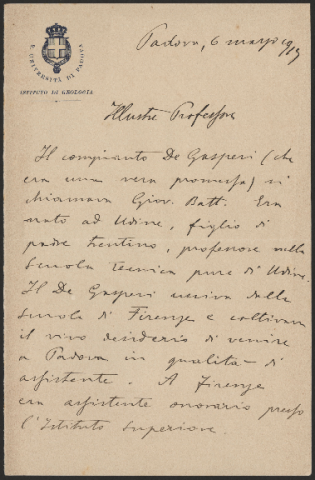 R. UNIVERSITÀ DI PADOVA
ISTITUTO DI GEOLOGIA
Padova, 6 marzo
Illustre Professore
Il compianto De Gasperi (che
era una vera promessa) si
chiamava Giov. Batt. Era
nato ad Udine, figlio di
padre trentino, professore nella
Scuola Tecnica pure di Udine.
Il De Gasperi usciva dalla
scuola di Firenze e coltivava
il vivo desiderio di venire
a Padova in qualità di
assistente. A Firenze
era assistente onorario presso
l'Istituto Superiore.